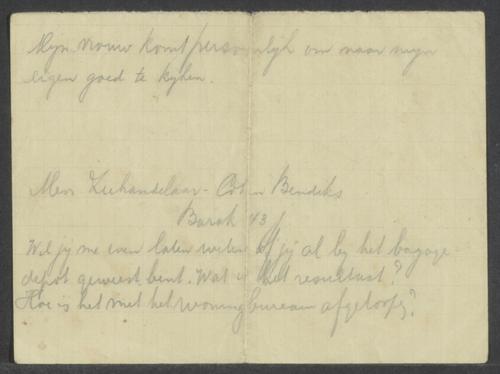 Mijn vrouw komt persoonlijk om naar mijn
eigen goed te kijken.
Mevr Zeehandelaar - Cohen Bendiks
Barak 43
Wil jij me even laten weten of jij al bij het bagage
depot geweest bent. Wat is het resultaat?
Hoe is het met het woningbureau afgeloopen?